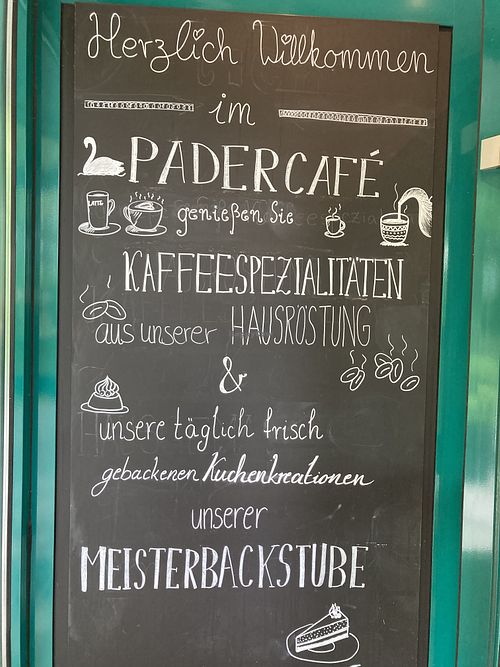 Herzlich Willkommen
im
PADERCAFÉ
LATTE
genießen Sie
KAFFEESPEZIALITÄTEN
aus unserer HAUSRÖSTUNG
&
unsere täglich frisch
gebackenen Kuchenkreationen
unserer
MEISTERBACKSTUBE